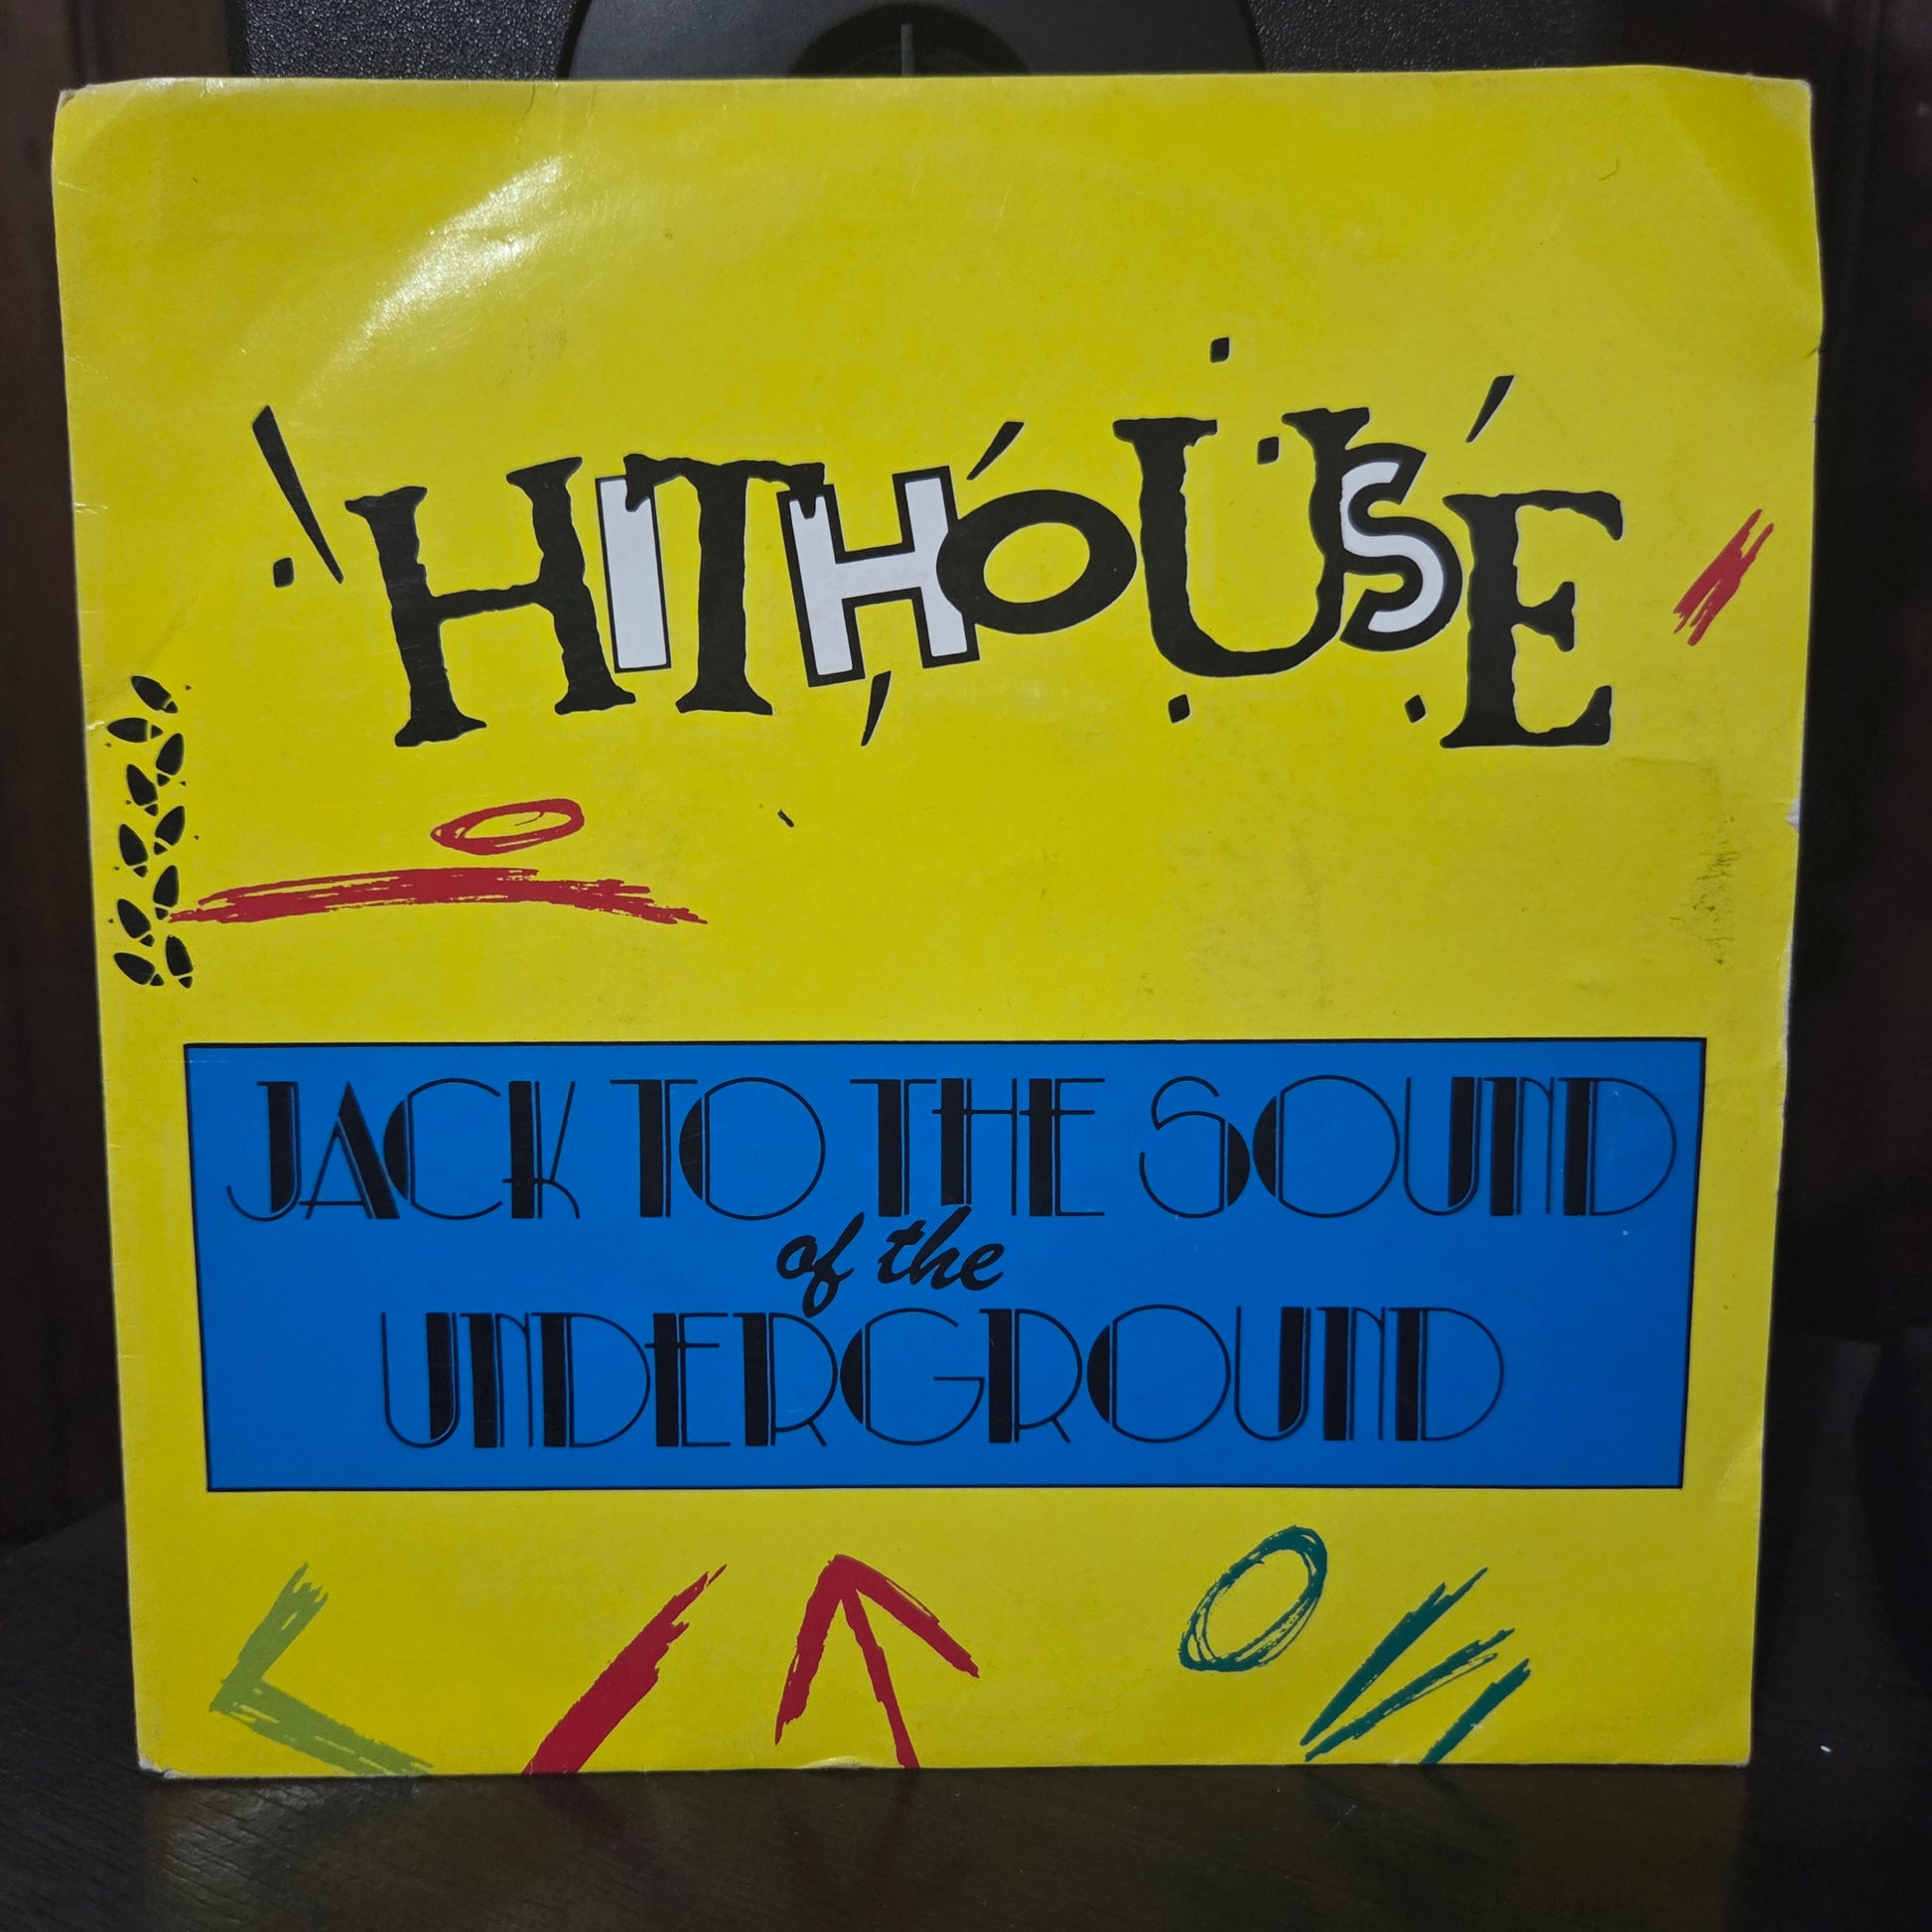 HITHOUSE
JACK TO THE SOUND
of the
UNDERGROUND